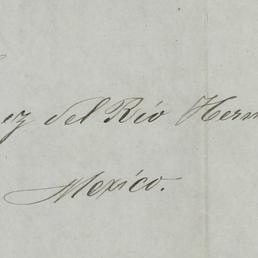 ez del Rio Herm
Mexico.